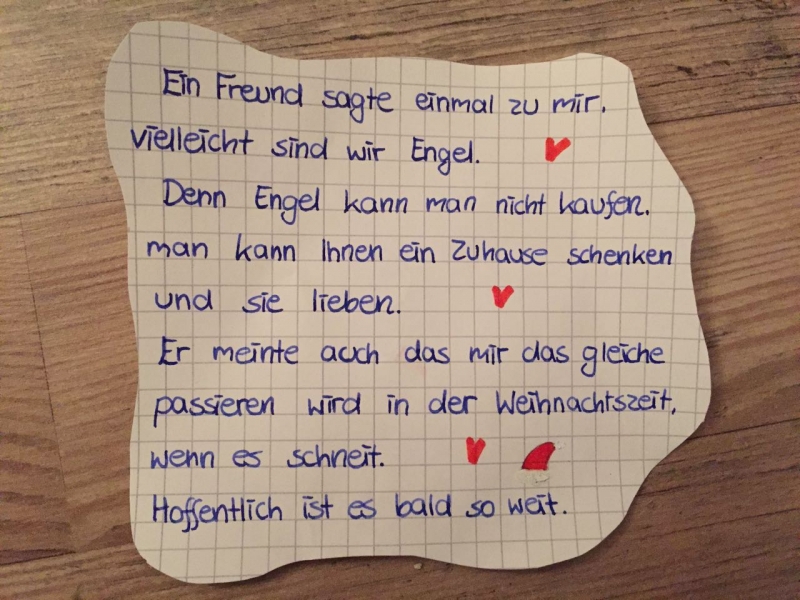 Ein Freund sagte einmal zu mir,
vielleicht sind wir Engel.
Denn Engel kann man nicht kaufen.
man kann Ihnen ein Zuhause schenken
und sie lieben.
Er meinte auch das mir das gleiche
passieren wird in der Weihnachtszeit,
wenn es schneit.
Hoffentlich ist es bald so weit.